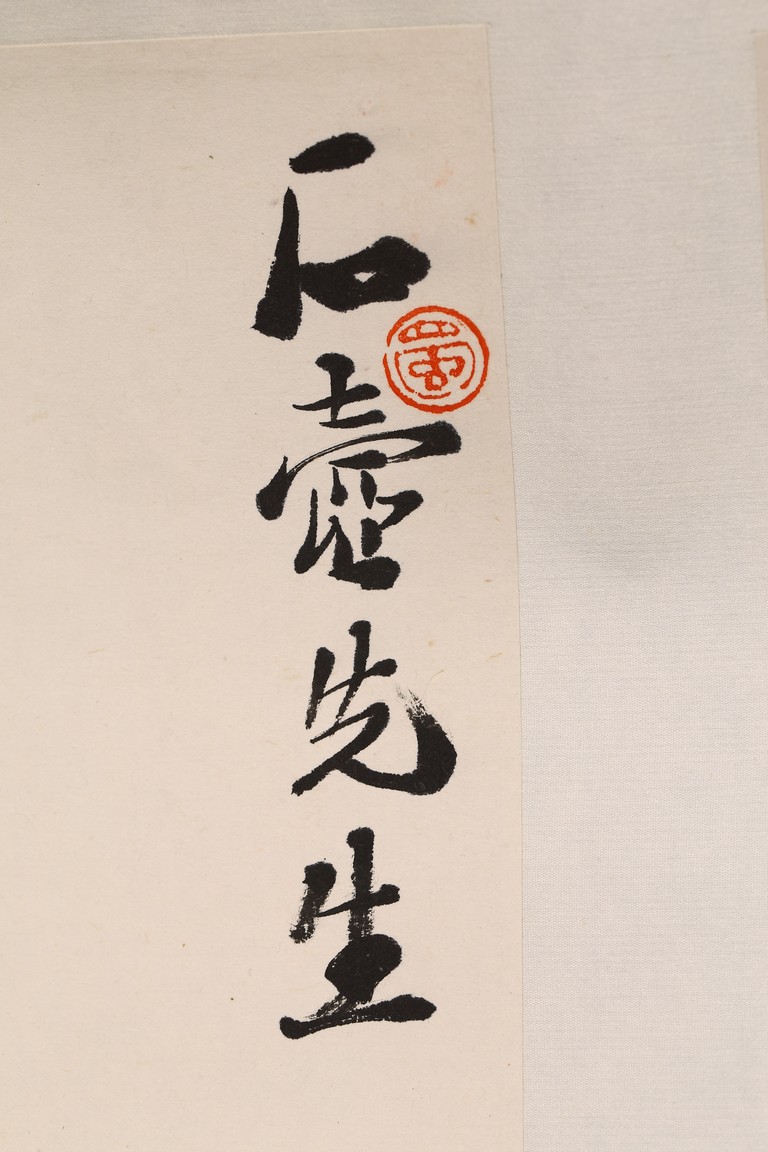 石壺先生
蜀